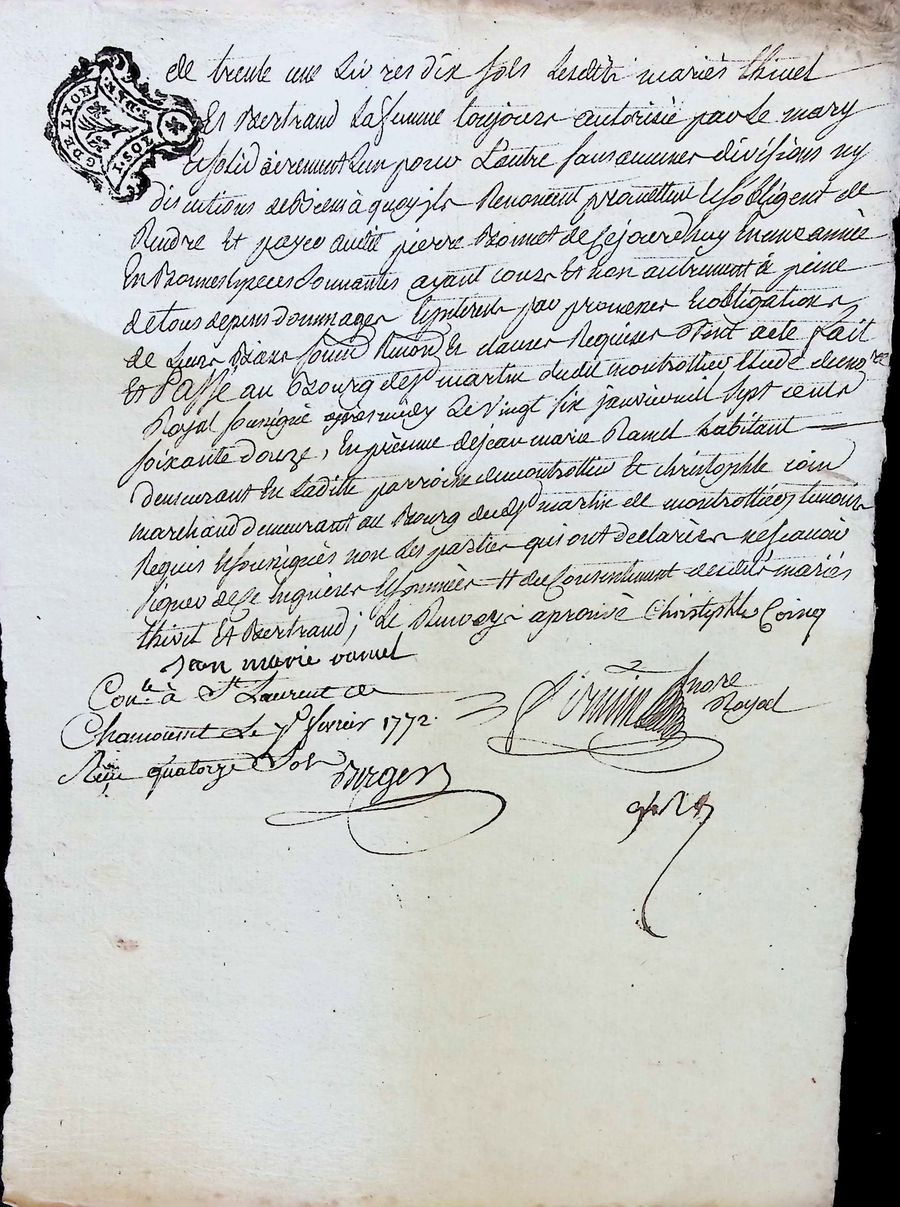 G DE LYON
1.SOL
de trente une Livres dix sols Lesdits mariés thivet
Et Bertrand La femme toujours autorisée par Le mary
Et solidairement L'un pour L'autre sans aucunes divisions ny
discutions de Biens à quoy ils Renoncent promettent Et s'obligent de
Rendre Et payer audit pierre Bonnet de Ce jourdhuy En une année
En Bonnes Especes Sonnantes ayant cours Et non autrement à peine
de tous depens dommages Interets par promesses Et obligations
de Leurs Biens soumis Renon. Et clauses Requises Dont acte Fait
Et Passé au Bourg de St martin dudit montrottier Etude du no.re
Royal soussigné apres midy Le Vingt six janvier mil sept cents
soixante douze, En présence de jean marie Ramel habitant
demeurant En Ladite parroisse de montrottier Et christophle coin
marchand demeurant au Bourg dudt St martin de montrottier temoins
Requis Et soussignés non Les parties qui ont déclarées ne sçavoir
signer de Ce Enquises Et sommées # du Consentement desdits mariés
thivet Et Bertrand; Le Renvoy aprouvé Christophle Coinq
Jean marie ramel
Con.lé à St Laurent de
Chamousset Le 7 fevrier 1772.
Reçu quatorze Sols
nore
Royal